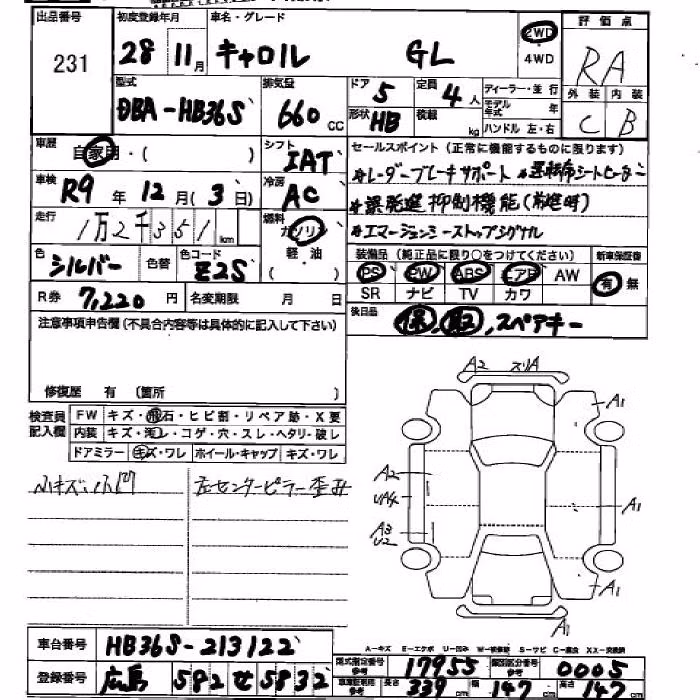 出品番号 初度登録年月 車名・グレード 2WD 評価点
231 28年 11月 キャロル GL 4WD RA
型式 排気量 ドア 定員 ディーラー・並行 外装 内装
DBA-HB36S 660cc 5 4人 モデル年式 年 C B
形状 HB 積載 kg ハンドル 左・右
車歴 自家用・( ) シフト IAT セールスポイント(正常に機能するものに限ります)
車検 R9年 12月(3日) 冷房 AC *レーダーブレーキサポート *運転席シートヒーター
*誤発進抑制機能(前進時)
走行 1万2千351km 燃料 ガソリン *エマージェンシーストップシグナル
軽油
( )
色 シルバー 色替 色コード Z2S 装備品(純正品に限り○をつけてください) 新車保証書
PS PW ABS エアB AW 有 無
R券 7,220円 名変期限 月 日 SR ナビ TV カワ
注意事項申告欄(不具合内容等は具体的に記入して下さい) 後日品 保, 取, スペアキー
修復歴 有 (箇所 )
検査員記入欄 FW キズ・飛石・ヒビ割・リペア跡・X要
内装 キズ・汚レ・コゲ・穴・スレ・ヘタリ・破レ
ドアミラー キズ・ワレ ホイール・キャップ キズ・ワレ
小キズ, 小凹 左センターピラー歪み
A2 スリA
A1 A1
A2
UA4
A1
A3
U2
A1
A1
A-キズ E-エクボ U-凹み W-補修跡 S-サビ C-腐食 XX-交換済
車台番号 HB36S-213122
型式指定番号 参考 17955 類別区分番号 参考 0005
登録番号 広島 582 せ 5832
車体証明用 参考 長さ 339cm 幅 147cm 高さ 147cm